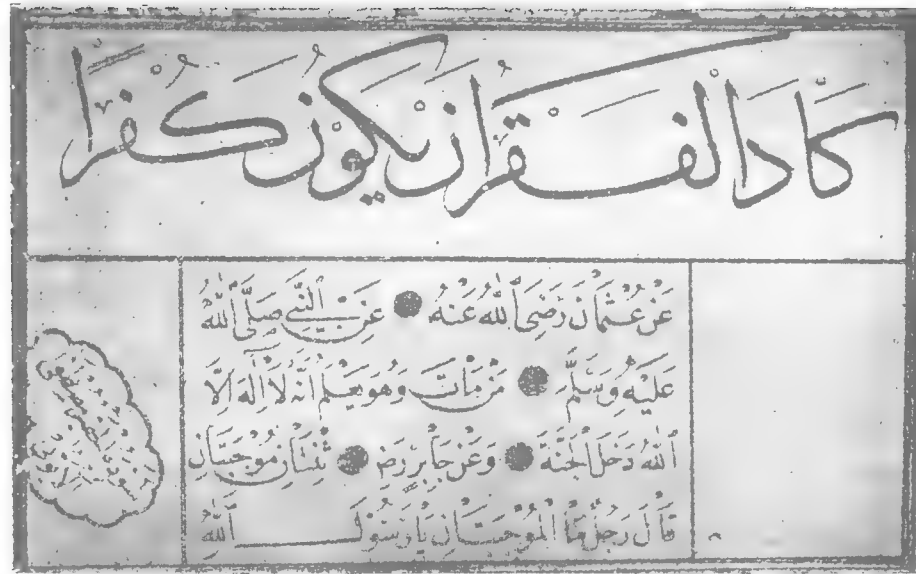 كَادَ الْفَقْرُ اَنْ يَكُونَ كُفْرًا
عَنْ عُثْمَانَ رَضِىَ اللّٰهُ عَنْهُ عَنِ النَّبِىِّ صَلَّى اللّٰهُ
عَلَيْهِ وَسَلَّمَ مَنْ مَاتَ وَهُوَ يَعْلَمُ اَنَّهُ لَا اِلٰهَ اِلَّا
اللّٰهُ دَخَلَ الْجَنَّةَ وَعَنْ جَابِرٍ رَضِ ثِنْتَانِ مُوجِبَتَانِ
قَالَ رَجُلٌ مَا الْمُوجِبَتَانِ يَا رَسُولَ اللّٰهِ